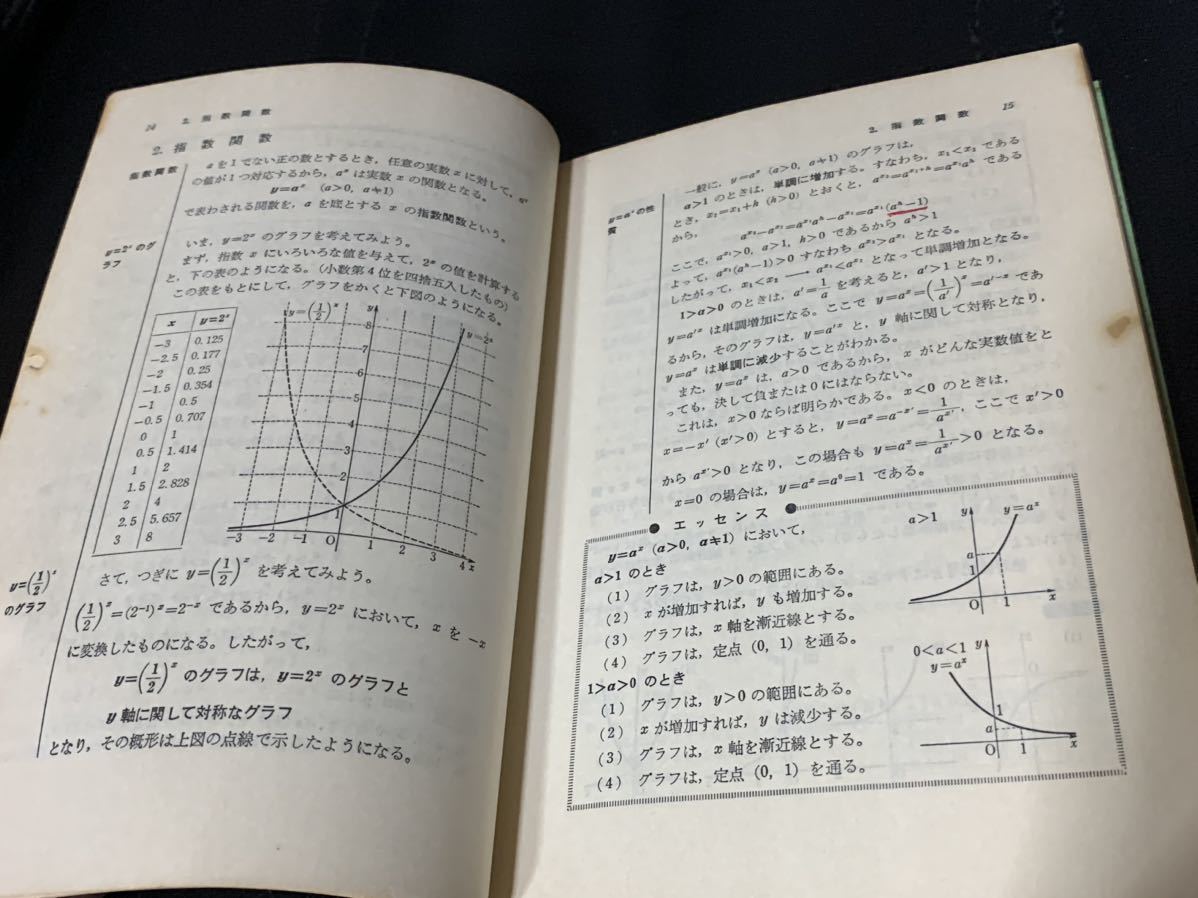 14 2. 指数関数
2. 指数関数
指数関数
a を1でない正の数とするとき，任意の実数 x に対して，aˣ
の値が1つ対応するから，aˣ は実数 x の関数となる。
y=aˣ (a>0, a≠1)
で表わされる関数を，a を底とする x の指数関数という。
y=2ˣ のグ
ラフ
いま，y=2ˣ のグラフを考えてみよう。
まず，指数 x にいろいろな値を与えて，2ˣ の値を計算する
と，下の表のようになる。(小数第4位を四捨五入したもの)
この表をもとにして，グラフをかくと下図のようになる。
x y=2ˣ
−3 0.125
−2.5 0.177
−2 0.25
−1.5 0.354
−1 0.5
−0.5 0.707
0 1
0.5 1.414
1 2
1.5 2.828
2 4
2.5 5.657
3 8
y=(1/2)ˣ y y=2ˣ
8
7
6
5
4
3
2
1
−3 −2 −1 O 1 2 3 4 x
y=(1/2)ˣ
のグラフ
さて，つぎに y=(1/2)ˣ を考えてみよう。
(1/2)ˣ=(2⁻¹)ˣ=2⁻ˣ であるから，y=2ˣ において，x を −x
に変換したものになる。したがって，
y=(1/2)ˣ のグラフは，y=2ˣ のグラフと
y 軸に関して対称なグラフ
となり，その概形は上図の点線で示したようになる。
2. 指数関数 15
y=aˣ の性
質
一般に，y=aˣ (a>0, a≠1) のグラフは，
a>1 のときは，単調に増加する。すなわち，x₁<x₂ である
とき，x₂=x₁+h (h>0) とおくと，a^x₂=a^(x₁+h)=a^x₁a^h である
から， a^x₂−a^x₁=a^x₁a^h−a^x₁=a^x₁(a^h−1)
ここで，a^x₁>0, a>1, h>0 であるから a^h>1
よって，a^x₁(a^h−1)>0 すなわち a^x₂>a^x₁ となる。
したがって，x₁<x₂ ⟶ a^x₁<a^x₂ となって単調増加となる。
1>a>0 のときは，a′=1/a を考えると，a′>1 となり，
y=a′ˣ は単調増加になる。ここで y=aˣ=(1/a′)ˣ=a′⁻ˣ であ
るから，そのグラフは，y=a′ˣ と，y 軸に関して対称となり，
y=aˣ は単調に減少することがわかる。
また，y=aˣ は，a>0 であるから，x がどんな実数値をと
っても，決して負または0にはならない。
これは，x>0 ならば明らかである。x<0 のときは，
x=−x′ (x′>0) とすると，y=aˣ=a^(−x′)=1/a^x′，ここで x′>0
から a^x′>0 となり，この場合も y=aˣ=1/a^x′>0 となる。
x=0 の場合は，y=aˣ=a⁰=1 である。
● エッセンス ●
y=aˣ (a>0, a≠1) において，
a>1 のとき
(1) グラフは，y>0 の範囲にある。
(2) x が増加すれば，y も増加する。
(3) グラフは，x 軸を漸近線とする。
(4) グラフは，定点 (0, 1) を通る。
1>a>0 のとき
(1) グラフは，y>0 の範囲にある。
(2) x が増加すれば，y は減少する。
(3) グラフは，x 軸を漸近線とする。
(4) グラフは，定点 (0, 1) を通る。
a>1 y y=aˣ
a
1
O 1 x
0<a<1 y
y=aˣ
1
a
O 1 x